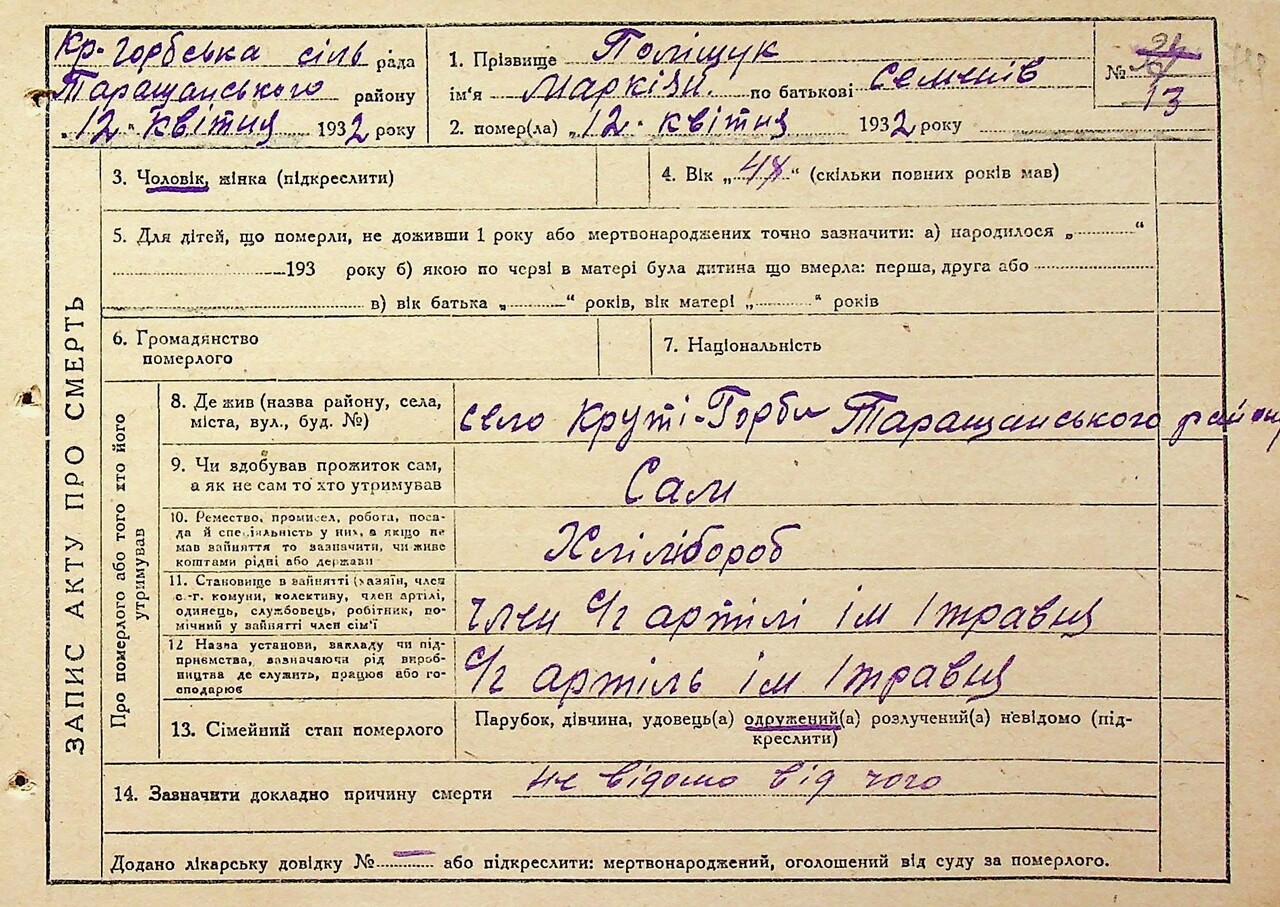 Кр-Горбська сіль рада
Таращанського району
„12" квітня 1932 року
1. Прізвище Поліщук
ім'я Маркіян. по батькові Семенів
2. помер(ла) „12" квітня 1932 року
№ 13
ЗАПИС АКТУ ПРО СМЕРТЬ
3. Чоловік, жінка (підкреслити)
4. Вік „48" (скільки повних років мав)
5. Для дітей, що померли, не доживши 1 року або мертвонароджених точно зазначити: а) народилося „ "
193 року б) якою по черзі в матері була дитина що вмерла: перша, друга або
в) вік батька „ " років, вік матері „ " років
6. Громадянство
померлого
7. Національність
Про померлого або того хто його
утримував
8. Де жив (назва району, села,
міста, вул., буд. №)
село Круті-Горби Таращанського району
9. Чи здобував прожиток сам,
а як не сам то хто утримував
Сам
10. Ремество, промисел, робота, поса-
да й спеціяльність у них, а якщо не
мав зайняття то зазначити, чи живе
коштами рідні або держави
Хлілібороб
11. Становище в зайнятті (хазяїн, член
с.-г. комуни, колективу, член артілі,
одинець, службовець, робітник, по-
мічний у зайнятті член сім'ї
член с/г артілі ім 1 травня
12 Назва установи, закладу чи під-
приємства, зазначаючи рід вироб-
ництва де служить, працює або го-
сподарює
с/г артіль ім 1 травня
13. Сімейний стан померлого
Парубок, дівчина, удовець(а) одружений(а) розлучений(а) невідомо (під-
креслити)
14. Зазначити докладно причину смерти не відомо від чого
Додано лікарську довідку № — або підкреслити: мертвонароджений, оголошений від суду за померлого.